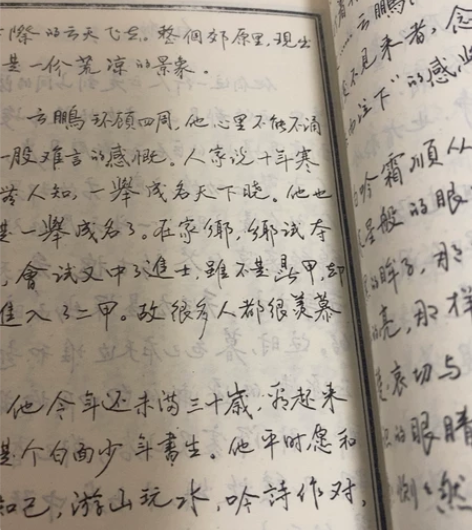 際的云天飞去。整個郊原里，現出
是一份荒凉的景象。
云鵬环顾四周，他心里不能不涌
一股难言的感慨。人家说十年寒
人知，一舉成名天下曉。他也
是一舉成名了。在家鄉，鄉试夺
，會试又中了進士，雖不是鼎甲，却
進入了二甲。故很多人都很羡慕
他今年还未满三十歲，看起来
是个白面少年書生。他平时愿和
知己，游山玩水，吟詩作对，
云鵬
不見来者，念
下”的感
吟霜順从
星般的眼
的眸子，那
亮，那样
哀切与
的眼睛
然